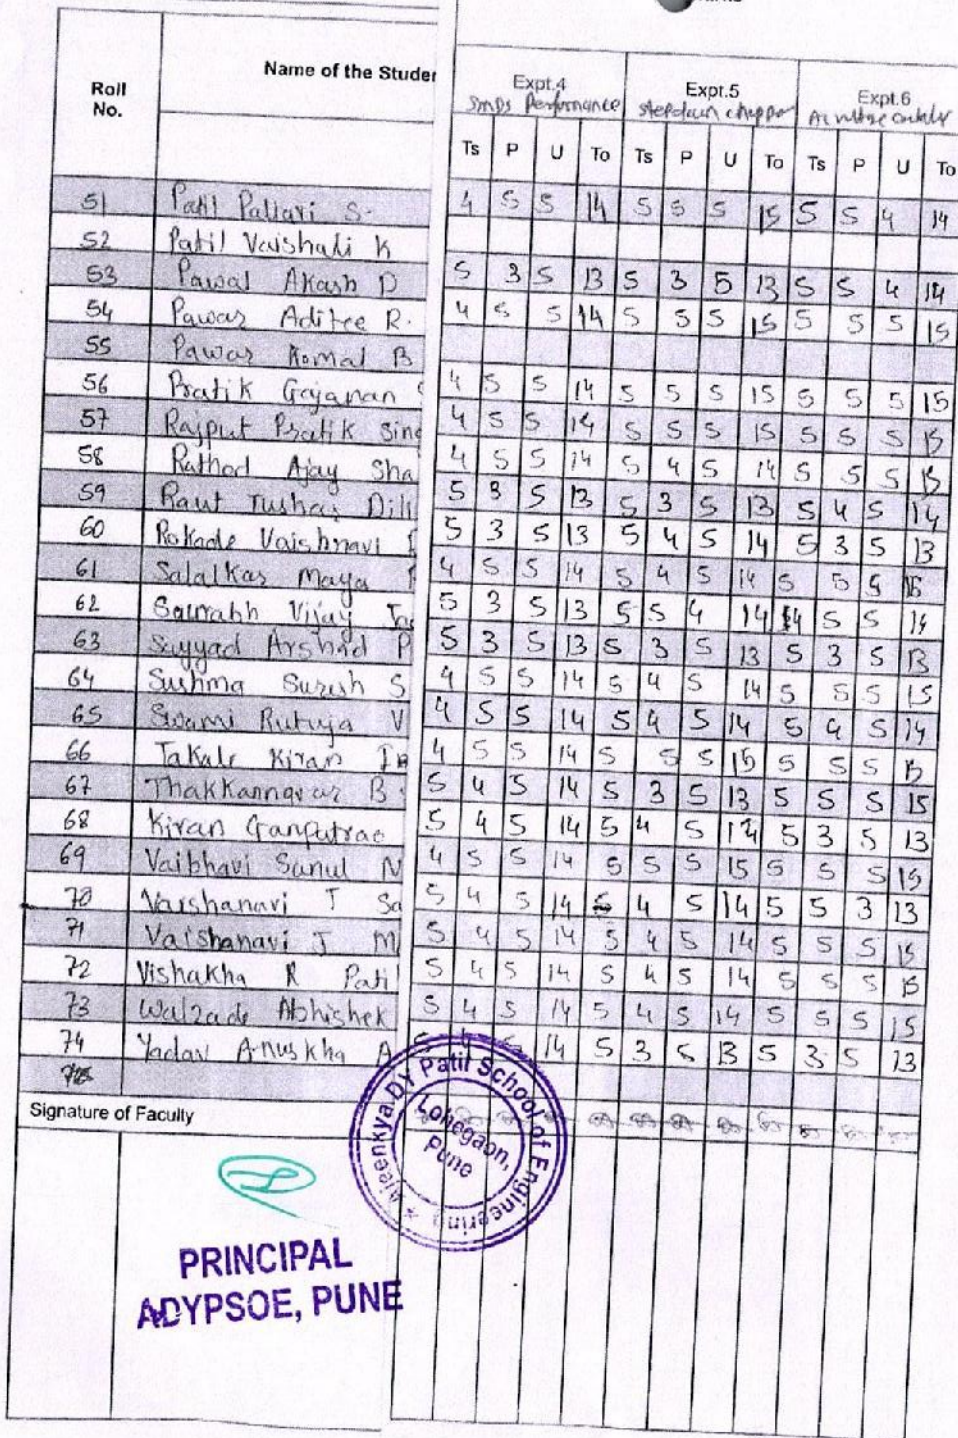 Roll No. Name of the Studen Expt.4 Expt.5 Expt.6
SMPS Performance stepdown chopper AC voltage
Ts P U To Ts P U To Ts P U To
51 Patil Pallavi S. 4 5 5 14 5 5 5 15 5 5 4 14
52 Patil Vaishali K
53 Pawal Akash D 5 3 5 13 5 3 5 13 5 5 4 14
54 Pawar Aditee R. 4 5 5 14 5 5 5 15 5 5 5 15
55 Pawar Komal B
56 Pratik Gajanan 4 5 5 14 5 5 5 15 5 5 5 15
57 Rajput Pratik Sing 4 5 5 14 5 5 5 15 5 5 5 15
58 Rathod Ajay Sha 4 5 5 14 5 4 5 14 5 5 5 15
59 Raut Tushar Dill 5 3 5 13 5 3 5 13 5 4 5 14
60 Rokade Vaishnavi 5 3 5 13 5 4 5 14 5 3 5 13
61 Salalkar Maya 4 5 5 14 5 4 5 14 5 5 5
62 Saurabh Vijay 5 3 5 13 5 5 4 14 4 5 5 14
63 Sayyad Arshad P 5 3 5 13 5 3 5 13 5 3 5 13
64 Sushma Suresh S 4 5 5 14 5 4 5 14 5 5 5 15
65 Swami Rutuja V 4 5 5 14 5 4 5 14 5 4 5 14
66 Takale Kiran 4 5 5 14 5 5 5 15 5 5 5 15
67 Thakkannavar B 5 4 5 14 5 3 5 13 5 5 5 15
68 Kiran Ganputrao 5 4 5 14 5 4 5 14 5 3 5 13
69 Vaibhavi Sunul N 4 5 5 14 5 5 5 15 5 5 5 15
70 Vaishanavi T Sa 5 4 5 14 5 4 5 14 5 5 3 13
71 Vaishanavi J M 5 4 5 14 5 4 5 14 5 5 5 15
72 Vishakha R Pati 5 4 5 14 5 4 5 14 5 5 5 15
73 Walzade Abhishek 5 4 5 14 5 4 5 14 5 5 5 15
74 Yadav Anuskha A 14 5 3 5 13 5 3 5 13
Signature of Faculty
Ajeenkya DY Patil School of Engineering
Lohegaon,
Pune
PRINCIPAL
ADYPSOE, PUNE